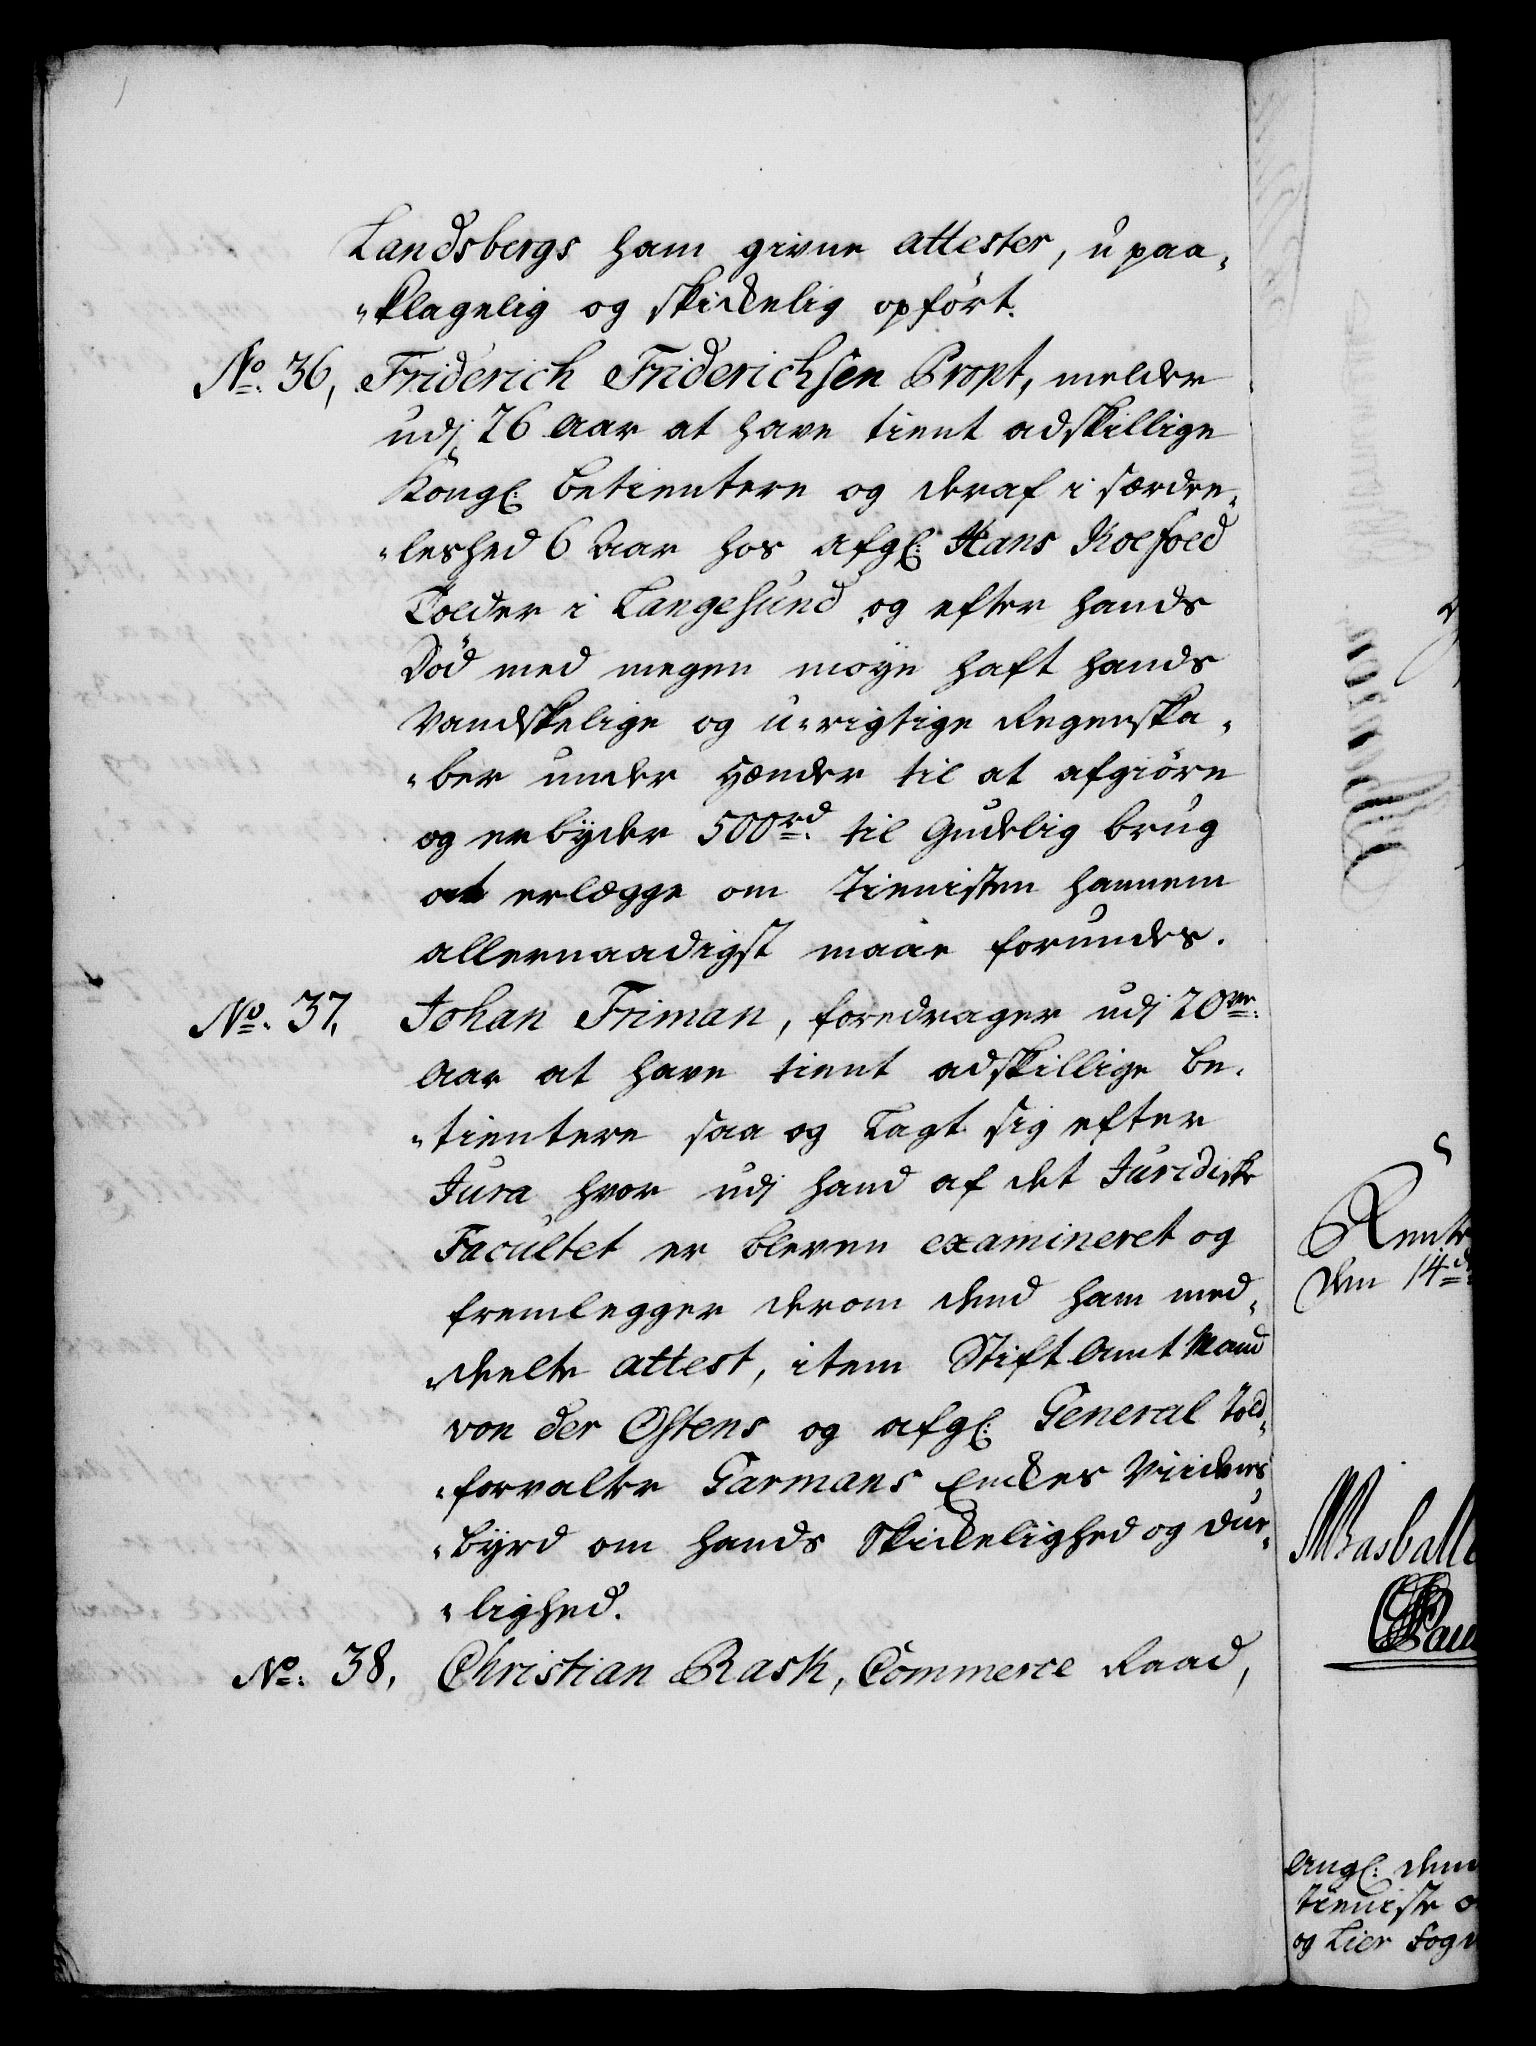 Landsbergs ham givne attester, upaa-
"klagelig og skikkelig opført.
No. 36, Friderich Friderichsen Propt, melder
udj 26 Aar at have tient adskillige
Kongl: betientere og deraf i særde-
"leshed 6 Aar hos afgl: Hans Koefoed
Tolder i Langesund, og efter hands
Død med megen møye haft hands
Vandskelige og u-rigtige Regenska-
"ber under Hænder til at afgiöre
og erbyder 500rd. til Gudelig brug
at erlægge om Tienisten hannem
allernaadigst maae forundes.
No. 37, Johan Friman, foredrager udj 20ve.
Aar at have tient adskillige Be-
"tientere saa og Lagt sig efter
Jura hvor udj hand af det Juridiske
Facultet er bleven examineret og
fremlegger derom dend ham med-
"deelte attest, item Stift Amt Mand
von der Ostens og afgl: General Told-
"forvalter Garmans Enckes Vidnes-
"byrd om hands Skikkelighed og due-
"lighed.
No. 38, Christian Rask, Commerce Raad,
Rente
den 14d
Angl: den
tieniste o
og Lier Fog